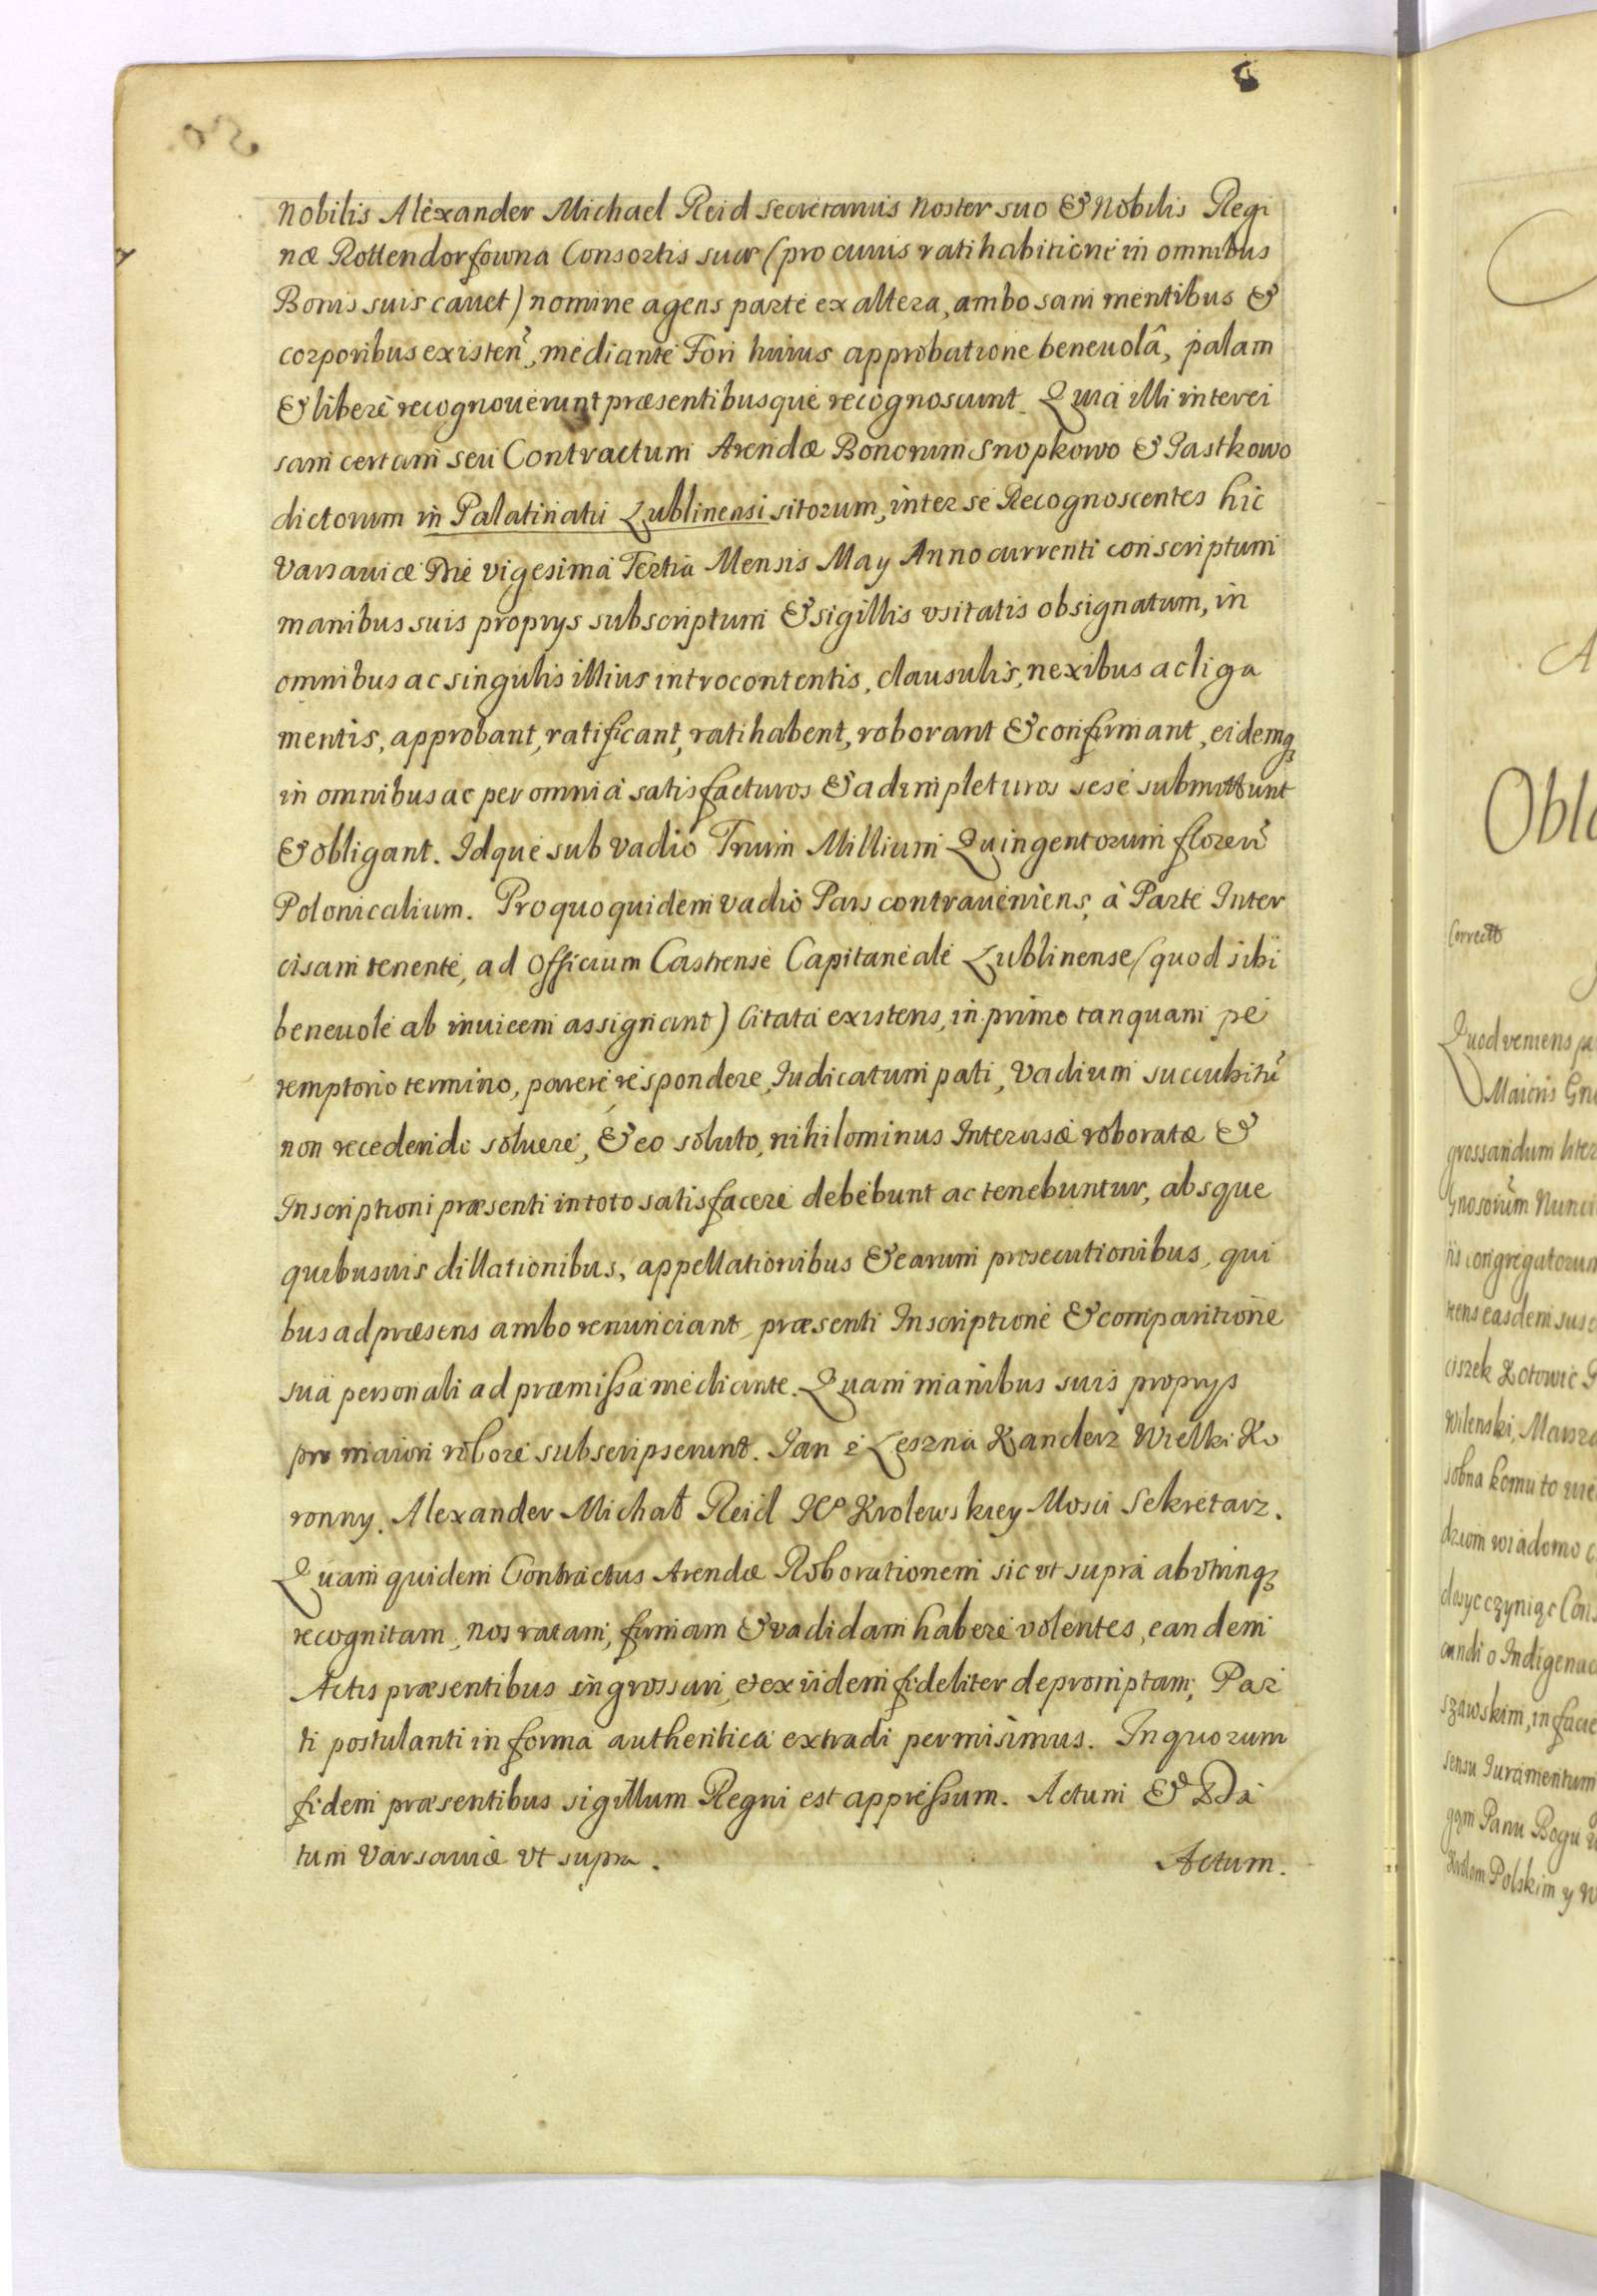 Nobilis Alexander Michael Reid Secretarius Noster suo & Nobilis Regi
næ Rottendorfowna Consortis suæ (pro cuius ratihabitione in omnibus
Bonis suis cauet) nomine agens parte ex altera, ambo sani mentibus &
corporibus existen̄, mediante Fori huius approbatione beneuolâ, palam
& liberè recognouerunt præsentibusque recognoscunt. Quia illi interci
sam certam seu Contractum Arendæ Bonorum Snopkowo & Jastkowo
dictorum in Palatinatu Lublinensi sitorum, inter se Recognoscentes hic
Varsauiæ Die vigesima Tertia Mensis May Anno currenti conscriptum
manibus suis proprys subscriptum & sigillis vsitatis obsignatum, in
omnibus ac singulis illius introcontentis, clausulis, nexibus ac liga
mentis, approbant, ratificant, ratihabent, roborant & confirmant, eidemqꝫ
in omnibus ac per omnia satisfacturos & adimpleturos sese submittunt
& obligant. Idque sub vadio Trium Millium Quingentorum floren̄
Polonicalium. Pro quo quidem vadio Pars contraueniens, à Parte Inter
cisam tenente, ad Officium Castrense Capitaneale Lublinense (quod sibi
beneuole ab inuicem assignant) Citata existens, in primo tanquam pe
remptorio termino, parere respondere, Iudicatum pati, vadium succubitū
non recedendo soluere, & eo soluto, nihilominus Intercisæ roboratæ &
Inscriptioni præsenti in toto satisfacere debebunt ac tenebuntur, absque
quibusuis dillationibus, appellationibus & earum prosecutionibus, qui
bus ad præsens ambo renunciant, præsenti Inscriptione & comparitione
sua personali ad præmissa mediante. Quam manibus suis proprys
pro maiori robore subscripserunt. Jan z Leszna Kanclerz Wielki Ko
ronny. Alexander Michał Reid Krolewskiey Mosci Sekretarz.
Quam quidem Contractus Arendæ Roborationem sic vt supra ab vtrinqꝫ
recognitam, nos ratam, firmam & vadidam habere volentes, eandem
Actis præsentibus ingrossari, et ex iisdem fideliter depromptam, Par
ti postulanti in forma authentica extradi permisimus. In quorum
fidem præsentibus sigillum Regni est appressum. Actum & Da
tum Varsauiæ vt supra. Actum.
Oblo
Correct
Quod veniens
Maioris
grossandum liter
Gnosorum Nunci
iis congregatorum
ciszek Kotowic
Wilenski, Marsza
sobna komu to
dziom wiadomo
dosyc czyniąc
candi o Indigena
szawskim, in facie
sensu Iuramentum
Panu Bogu
Krolom Polskim y